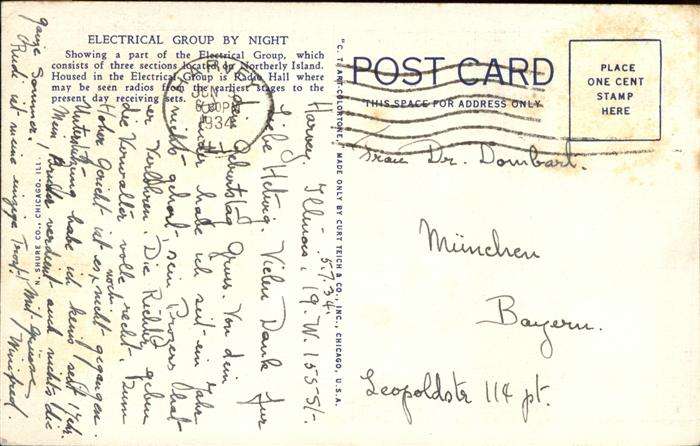 ELECTRICAL GROUP BY NIGHT
Showing a part of the Electrical Group, which
consists of three sections located on Northerly Island.
Housed in the Electrical Group is Radio Hall where
may be seen radios from the earliest stages to the
present day receiving sets.
POST CARD
THIS SPACE FOR ADDRESS ONLY
PLACE
ONE CENT
STAMP
HERE
JUN
6 30 PM
1934
"C. T. ART-COLORTONE" MADE ONLY BY CURT TEICH & CO., INC., CHICAGO, U.S.A.
N. SHURE CO., CHICAGO, ILL.
Frau Dr. Dombart.
München
Bayern.
Leopoldstr 114 pt.
Harvey, Illinois, 19. W. 155 St.
5.7.34.
Liebe Hedwig. Vielen Dank für
den Geburtstag Gruss. Von dein
Bruder habe ich seit ein Jahr
nichts gehört, sein Prozess hat
er verlohren. Die Richter geben
die Verwalter volle recht. Zum
Hoher Gericht ist es noch nicht gegangen.
Unterstützung habe ich keins seit 1 Jh.
Mein Bruder verdient auch nichts die
ganze Sommer.
Rudi ist meine einzige Trost! Mit Grüssen
Winifred